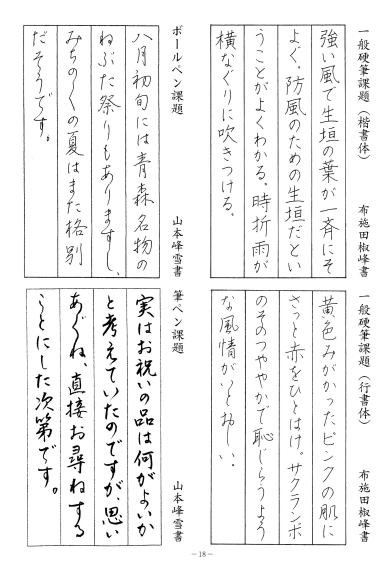 一般硬筆課題（楷書体）　布施田椒峰書
強い風で生垣の葉が一斉にそ
よぐ。防風のための生垣だとい
うことがよくわかる。時折雨が
横なぐりに吹きつける。
ボールペン課題　山本峰雪書
八月初旬には青森名物の
ねぶた祭りもありますし、
みちのくの夏はまた格別
だそうです。
一般硬筆課題（行書体）　布施田椒峰書
黄色みがかったピンクの肌に
さっと赤をひとはけ。サクランボ
のそのつややかで恥じらうよう
な風情がいとおしい。
筆ペン課題　山本峰雪書
実はお祝いの品は何がよいか
と考えていたのですが、思い
あぐね、直接お尋ねする
ことにした次第です。
－18－